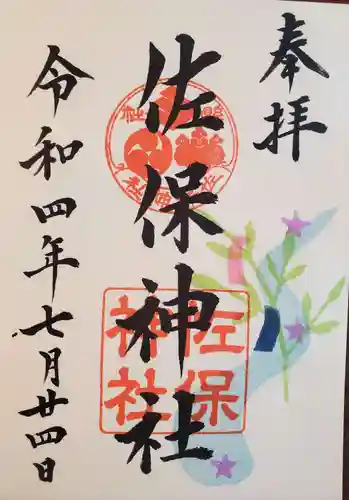 奉拝
佐保神社
佐保
神社
令和四年七月廿四日